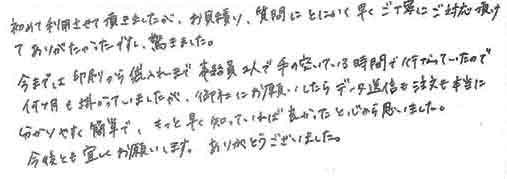 初めて利用させて頂きましたが、お見積り、質問にとにかく早くご丁寧にご対応頂け
てありがたかったですし、驚きました。
今までは印刷から納入れまで事務員2人で手の空いている時間で行なっていたので
何ヶ月も掛かっていましたが、御社にお願いしたらデータ送信も注文も本当に
分かりやすく簡単で、もっと早く知っていれば良かったと心から思いました。
今後とも宜しくお願いします。ありがとうございました。